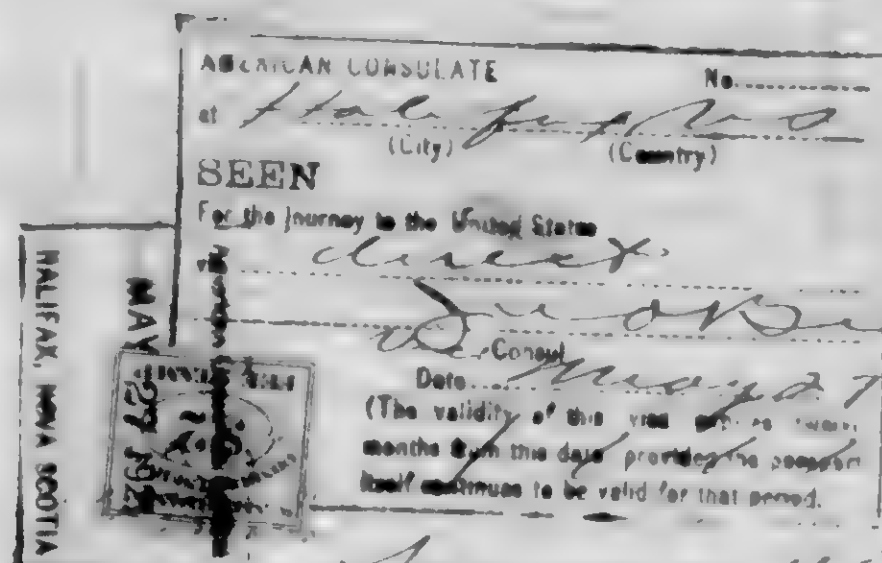 AMERICAN CONSULATE No.
at Halifax N S
(City) (Country)
SEEN
For the Journey to the United States
via direct
Consul
Date May 27
(The validity of this visa expires twelve
months from this date provided the passport
itself continues to be valid for that period.
HALIFAX, NOVA SCOTIA
MAY 27 192